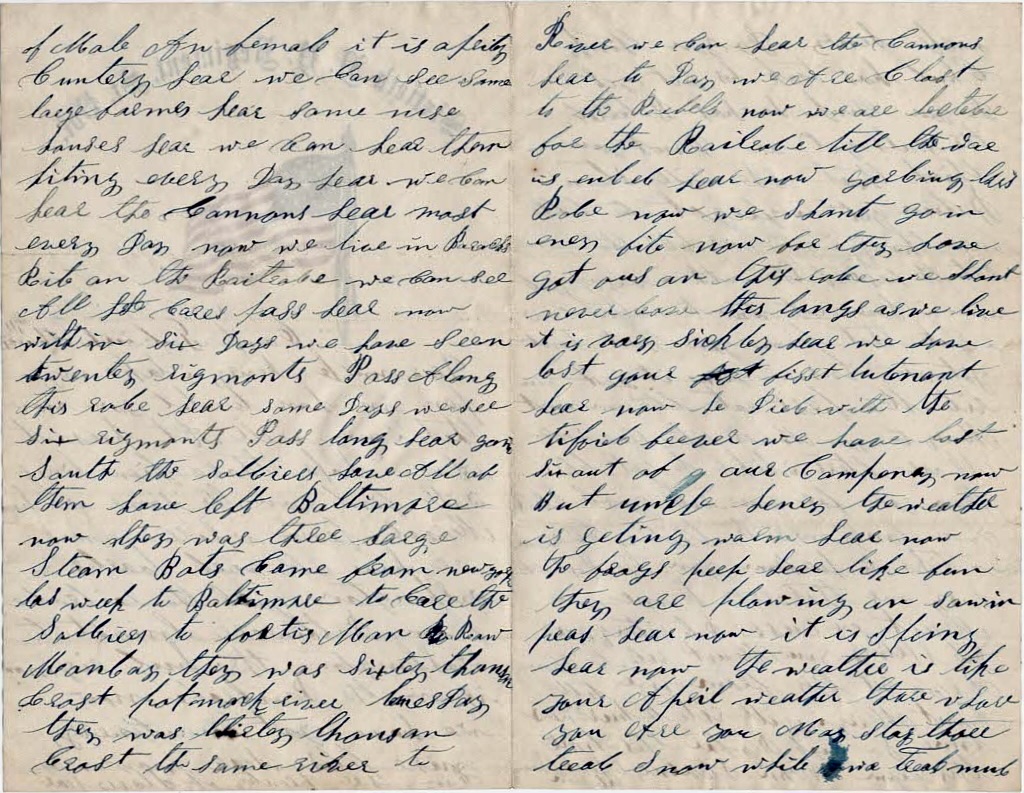 of Male An female it is a prity
Cuntery hear we Can see some
large farmes hear some nise
houses hear we Can hear them
fiting every Day hear we Can
hear the Cannons hear most
every Day now we live in
Rite an the Railrobe we Can see
All the Cares pass hear now
with in Six Days we have Seen
twentey rigmonts Pass Along
this robe hear some Days we see
Six rigmonts Pass long hear goin
South the Solbiers have All of
them have left Baltimore
now they was three large
Steam Bots Came from new york
las week to Baltimore to Care the
Solbiers to fortis Mon Row
Monbay they was sixtey thousan
Crost potmack river
they was thirtey thousan
Crost the same river to
River we Can hear the Cannons
hear to Day we Are Clost
to the Rebels now we are
for the Railrobe till the war
is enbeb hear now garbing this
Robe now we Shant go in
eney fite now for they have
got ous an this robe we Shant
never leave this longs as we live
it is very Sickley hear we have
lost your first lutenant
hear now he Dieb with the
tiffieb feever we have lost
Six out of our Campeney now
But unkle heney the weather
is geting warm hear now
the frogs peep hear like fun
they are plowing an sowin
peas hear now it is Spring
hear now the weather is like
your April weather thare whare
you Are you May stay thare
teeab Snow while teeab mub